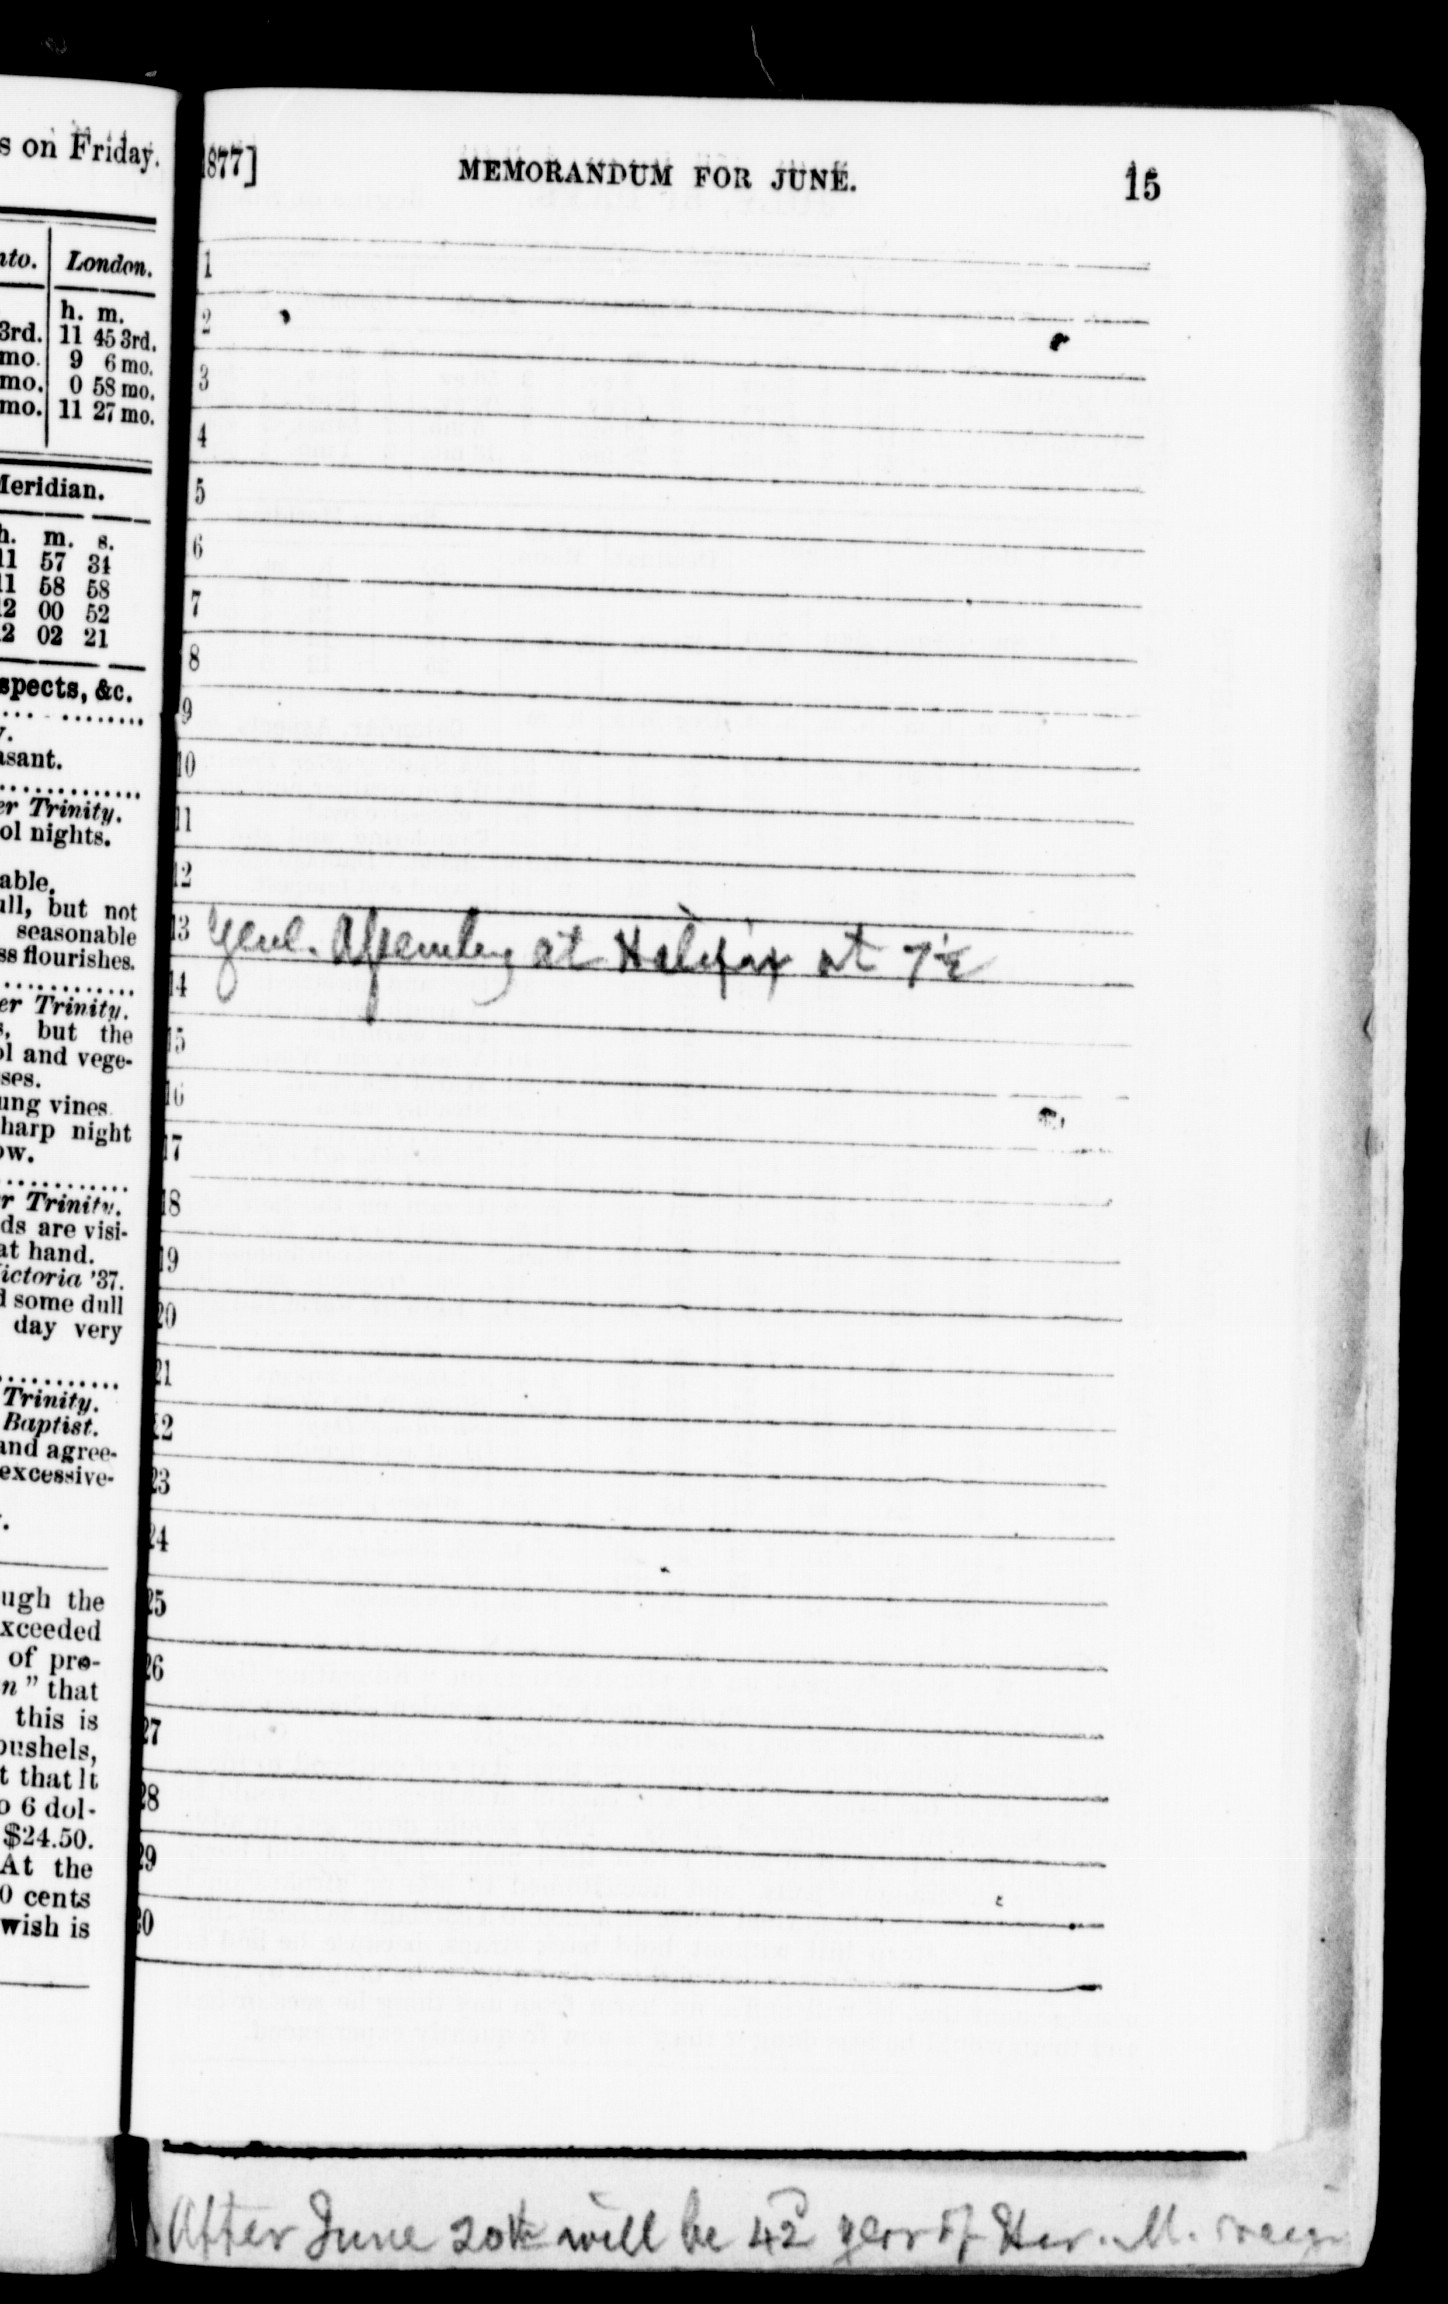 s on Friday.
nto. London.
h. m.
3rd. 11 45 3rd.
mo. 9 6 mo.
mo. 0 58 mo.
mo. 11 27 mo.
Meridian.
h. m. s.
11 57 34
11 58 58
12 00 52
12 02 21
spects, &c.
asant.
er Trinity.
ol nights.
able.
ull, but not
seasonable
ss flourishes.
er Trinity.
s, but the
ol and vege-
ses.
ung vines
harp night
ow.
r Trinity.
ds are visi-
at hand.
ictoria '37.
d some dull
day very
Trinity.
Baptist.
and agree-
excessive-
ugh the
xceeded
of pro-
n" that
this is
bushels,
t that it
o 6 dol-
$24.50.
At the
0 cents
wish is
1877] MEMORANDUM FOR JUNE. 15
1
2
3
4
5
6
7
8
9
10
11
12
13 Genl. Assembly at Halifax at 7½
14
15
16
17
18
19
20
21
22
23
24
25
26
27
28
29
30
After June 20th will be 42 year of Her. M. reign